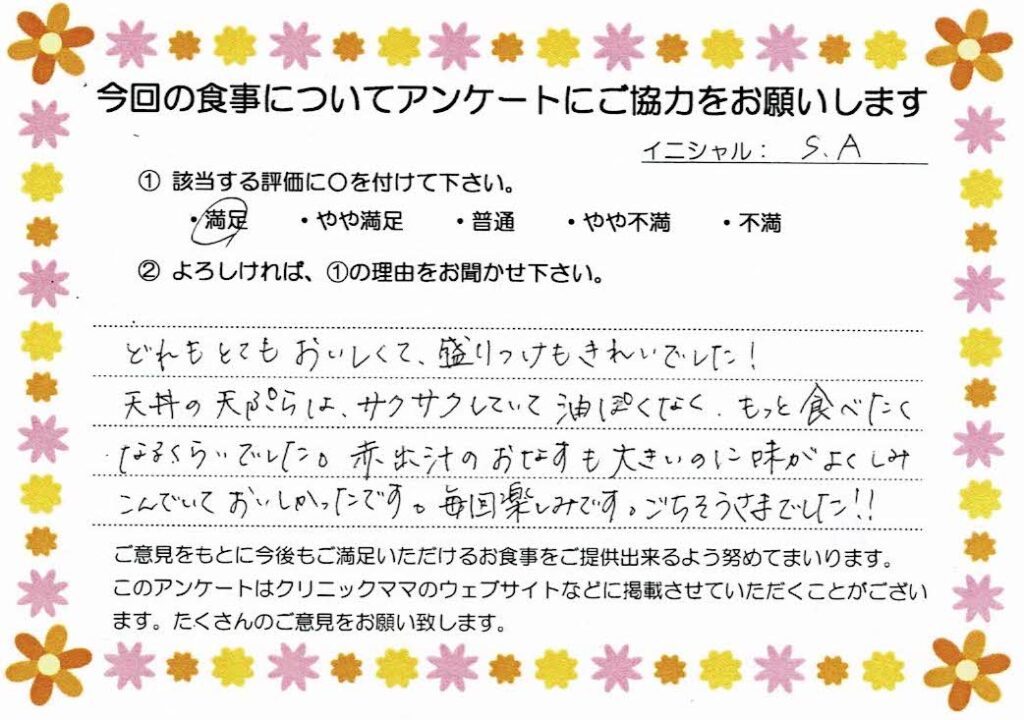 今回の食事についてアンケートにご協力をお願いします
イニシャル： S.A
① 該当する評価に〇を付けて下さい。
・満足 ・やや満足 ・普通 ・やや不満 ・不満
② よろしければ、①の理由をお聞かせ下さい。
どれもとてもおいしくて、盛りつけもきれいでした！
天丼の天ぷらは、サクサクしていて油ぽくなく、もっと食べたく
なるくらいでした。赤出汁のおなすも大きいのに味がよくしみ
こんでいておいしかったです。毎回楽しみです。ごちそうさまでした!!
ご意見をもとに今後もご満足いただけるお食事をご提供出来るよう努めてまいります。
このアンケートはクリニックママのウェブサイトなどに掲載させていただくことがござい
ます。たくさんのご意見をお願い致します。